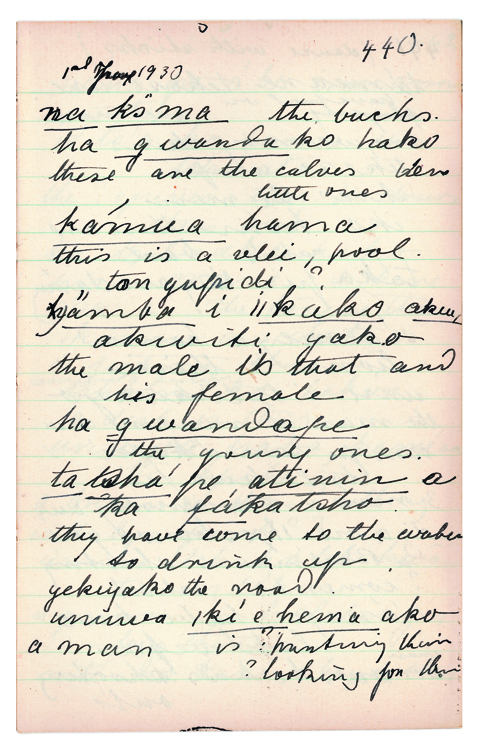 440.
1st Janry 1930
na ksma the bucks.
ha gwanda ko hako
these are the calves
little ones
kámua hama
this is a vlei, pool.
ton gupidi ?
i ||kako
akwiti yako
the male is that and
his female
ha gwandape
the young ones.
tatshá pe atinin a
ka fákatsho.
they have come to the water
to drink up
yekiyako the road.
unuwa |kí e hema ako
a man is ? hunting them
? looking for them